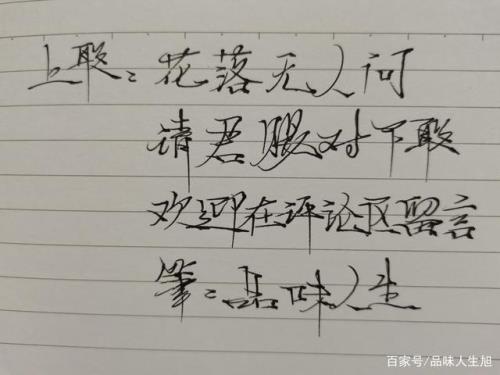 上联：花落无人问
请君赐对下联
欢迎在评论区留言
笔：品味人生
百家号/品味人生旭